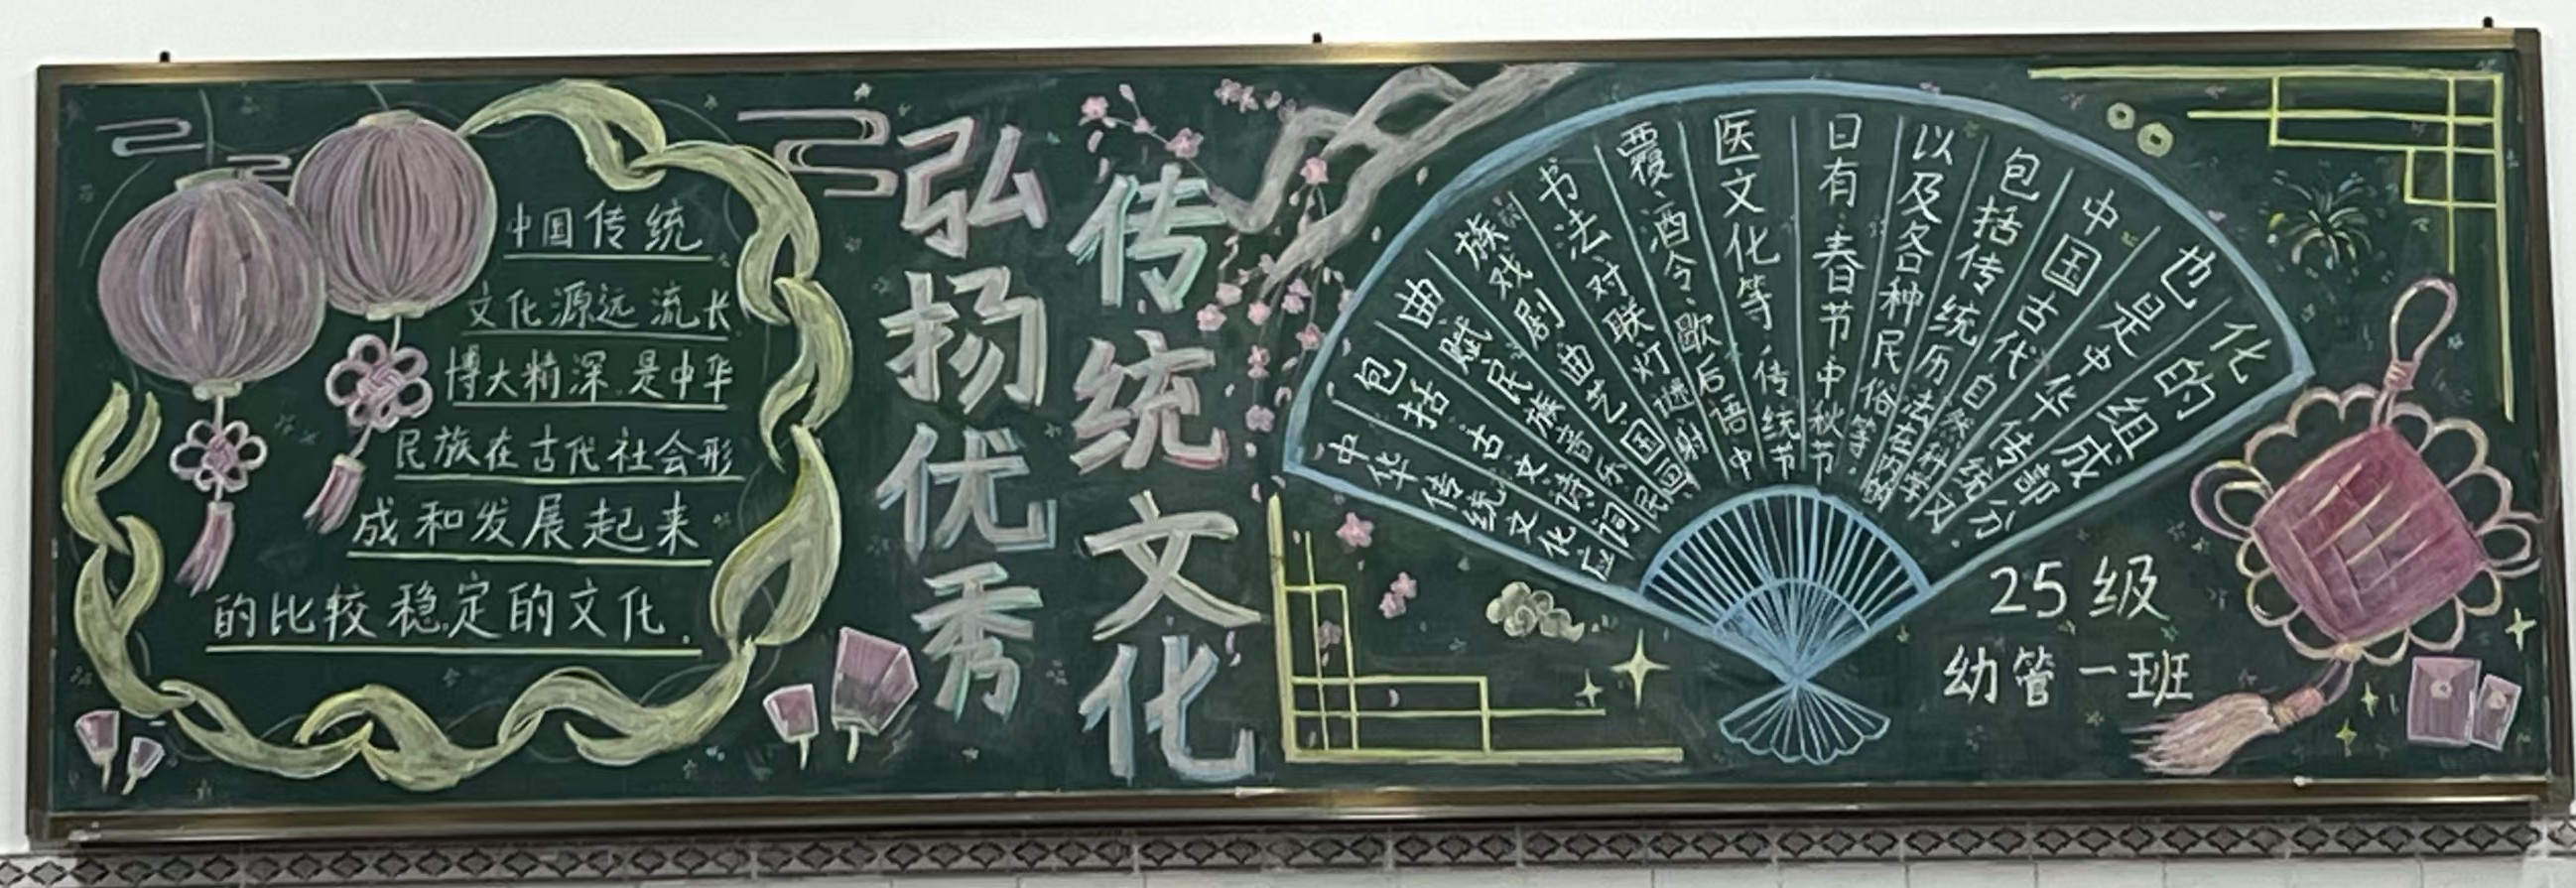 中国传统
文化源远流长
博大精深.是中华
民族在古代社会形
成和发展起来
的比较稳定的文化.
弘扬优秀
传统文化
中华传统文化应
包括:古文诗词
曲、赋、民族音乐、民
族戏剧、曲艺、国画
书法、对联、灯谜、射
覆、酒令、歇后语、中
医文化等,传统节
日有:春节中秋节
以及各种民俗等.
包括传统历法在内的
中国古代自然科学
也是中华传统文
化的组成部分.
25级
幼管一班